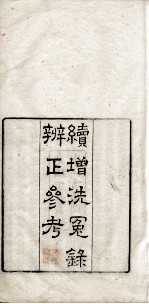 續增洗冤錄
辨正參考